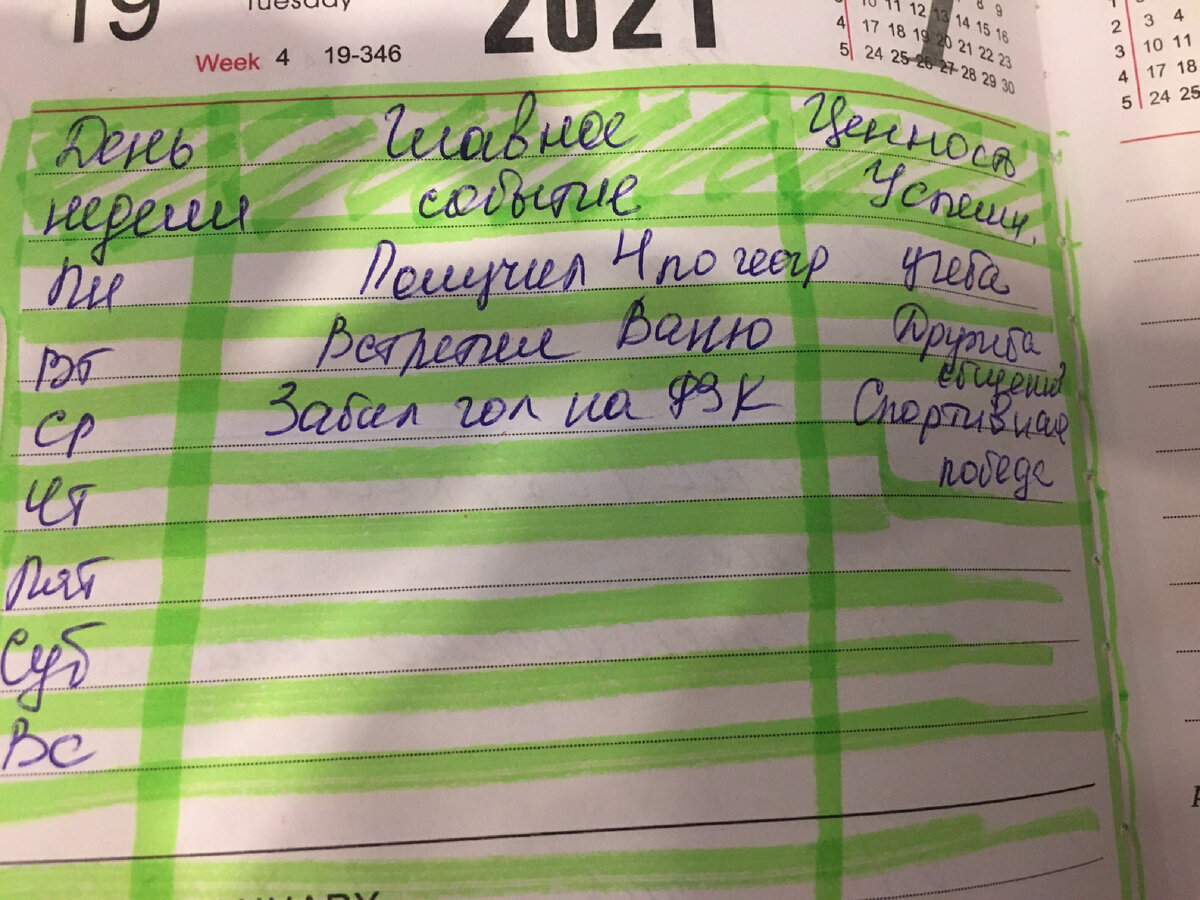 19 Tuesday 2021
Week 4 19-346
10 11 12 13 14 15 16
4 17 18 19 20 21 22 23
5 24 25 26 27 28 29 30
2 3 4
3 10 11
4 17 18
5 24 25
День Главное Ценность
недели событие Успешн.
Пн Получил 4 по геогр учеба
Вт Встретил Ваню Дружба
общения
Ср Забил гол на ФЗК Спортивная
Чт победа
Пят
Суб
Вс